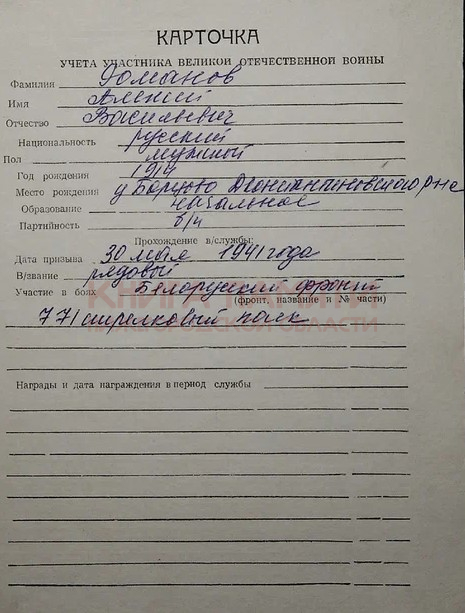 КАРТОЧКА
УЧЕТА УЧАСТНИКА ВЕЛИКОЙ ОТЕЧЕСТВЕННОЙ ВОЙНЫ
Фамилия Романов
Имя Алексей
Отчество Васильевич
Национальность русский
Пол мужской
Год рождения 1914
Место рождения Дконстантиновского р-на
Образование начальное
Партийность б/п
Прохождение в/службы:
Дата призыва 30 мая 1941 года
В/звание рядовой
Участие в боях Белоруский фронт
(фронт, название и № части)
КНИГА ПАМЯТИ
НИЖЕГОРОДСКОЙ ОБЛАСТИ
771 стрелковый полк
Награды и дата награждения в период службы